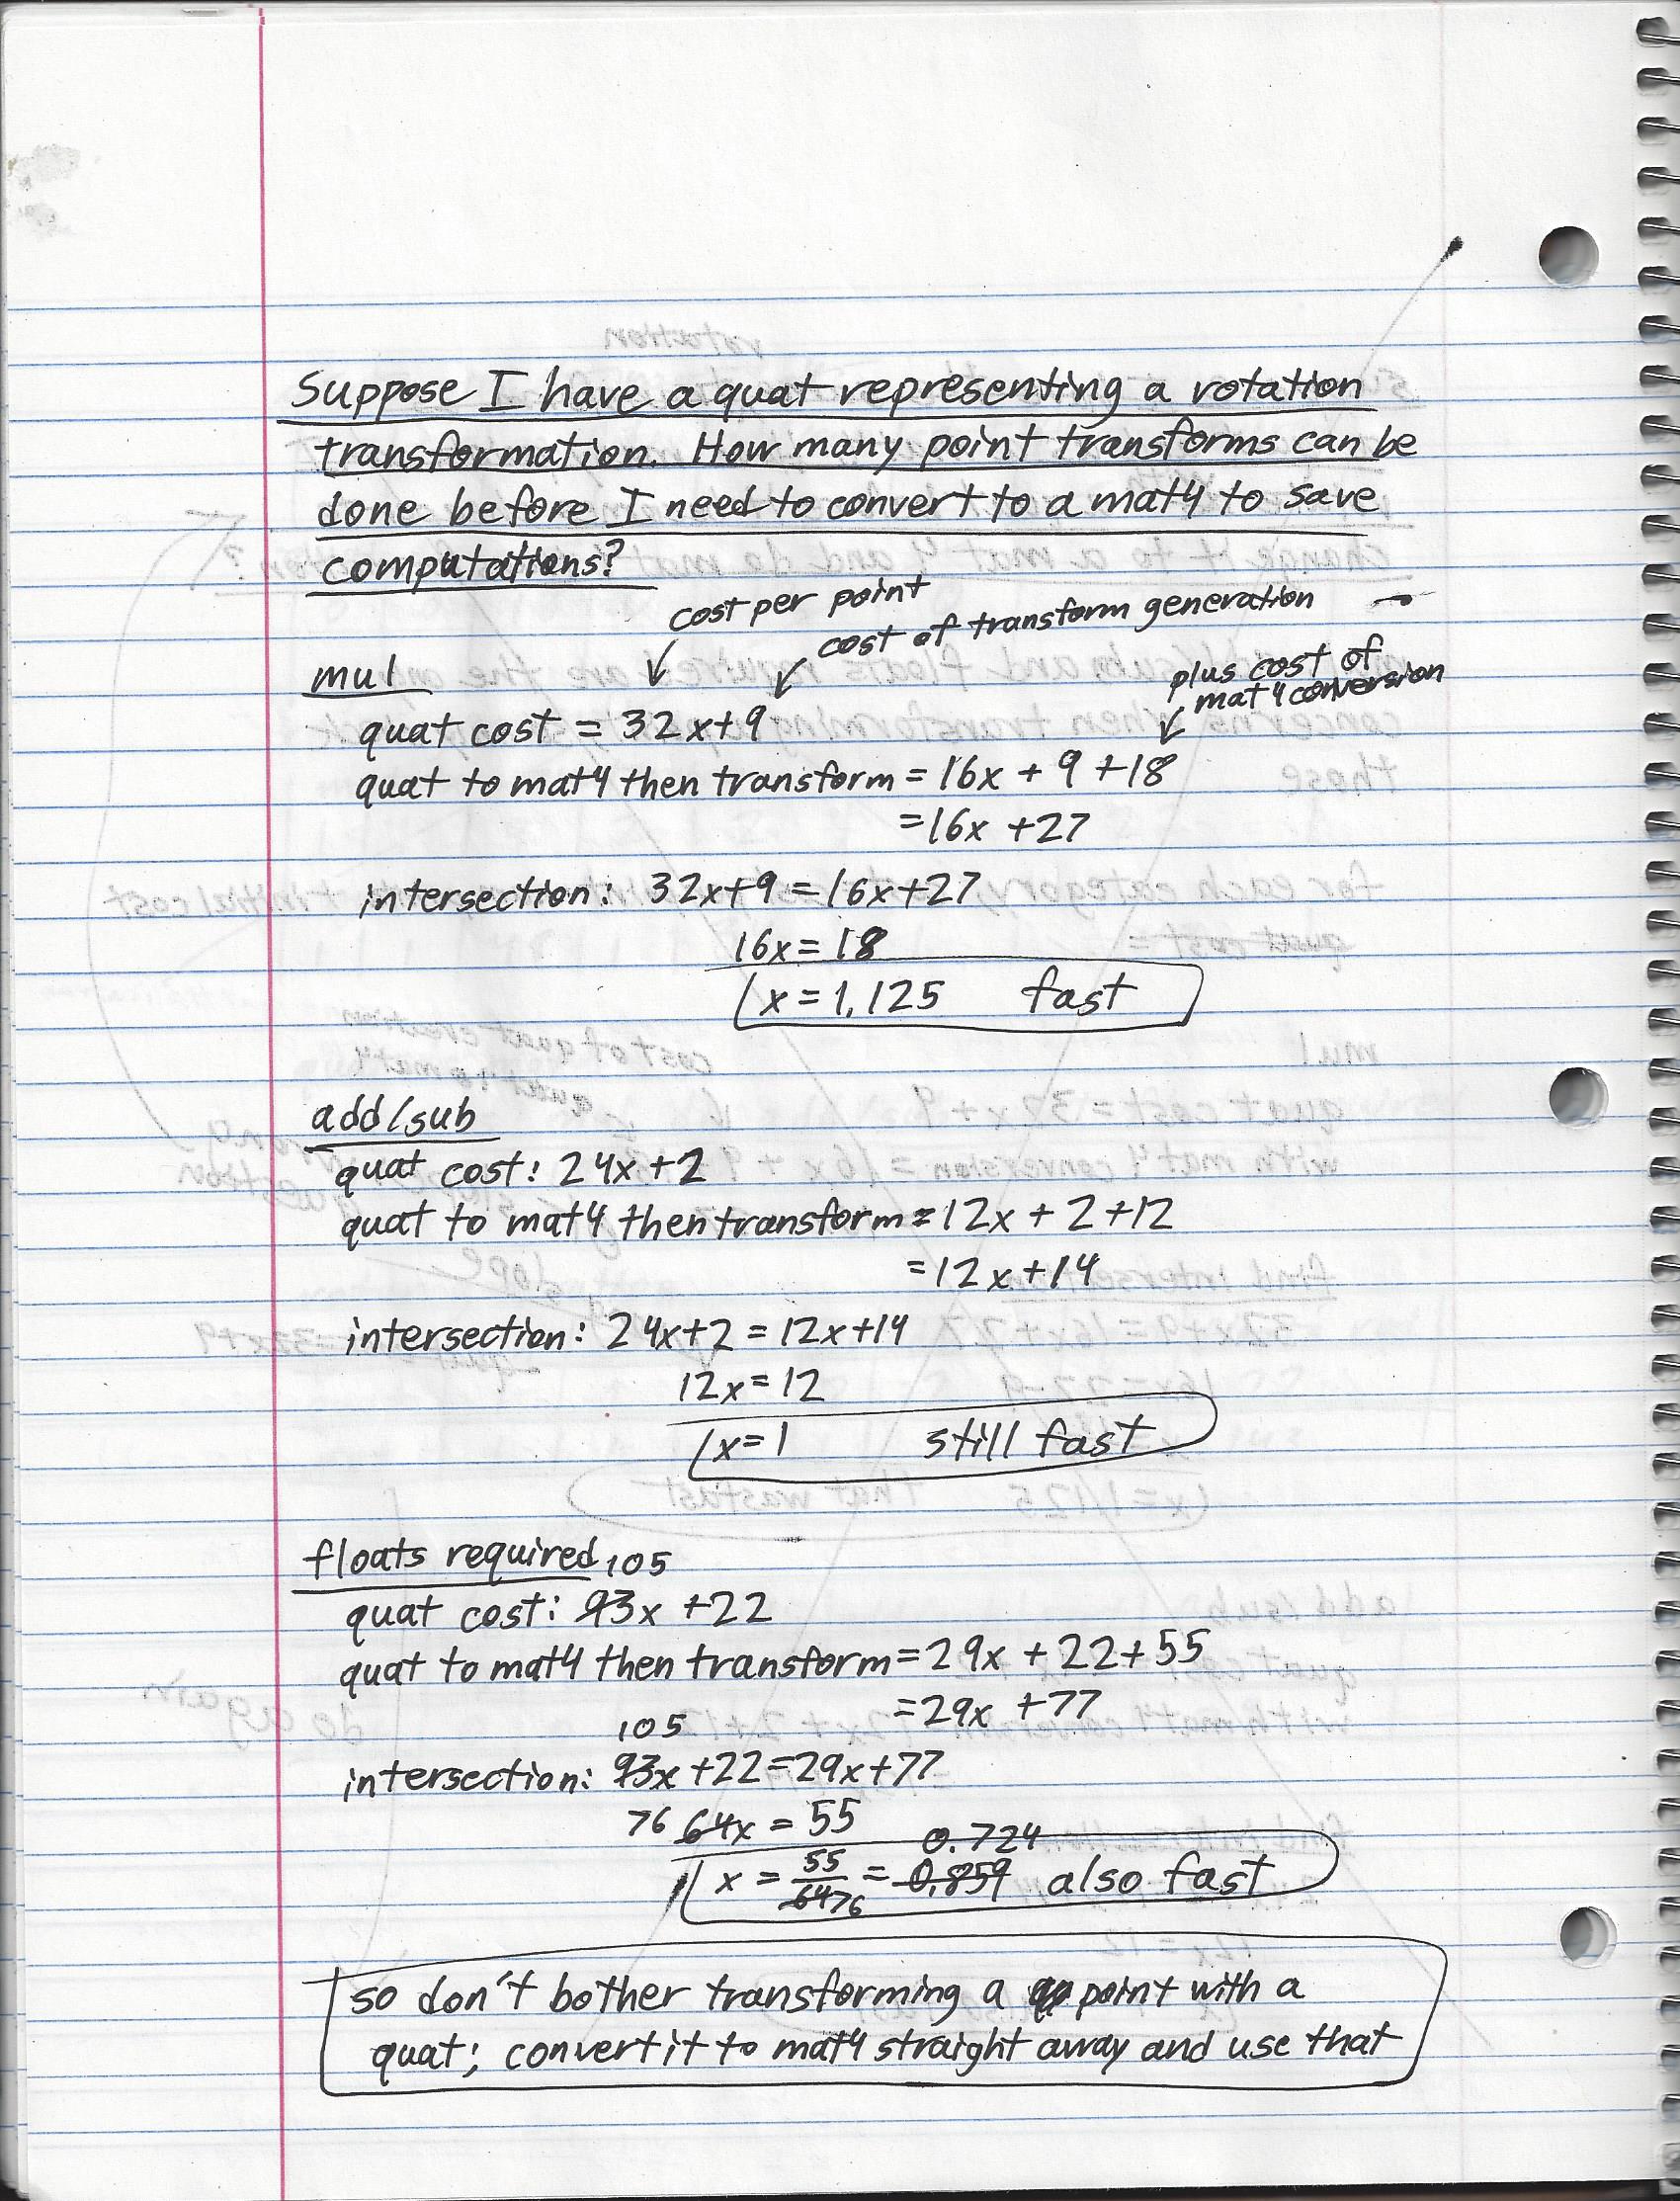 Suppose I have a quat representing a rotation
transformation. How many point transforms can be
done before I need to convert to a mat4 to save
computations?
cost per point
cost of transform generation
plus cost of
mat4 conversion
mul
quat cost = 32x+9
quat to mat4 then transform = 16x + 9 +18
=16x +27
intersection: 32x+9 = 16x+27
16x = 18
x = 1.125 fast
add/sub
quat cost: 24x+2
quat to mat4 then transform = 12x + 2 +12
= 12x+14
intersection: 24x+2 = 12x+14
12x = 12
x=1 still fast
floats required 105
quat cost: 93x +22
quat to mat4 then transform = 29x + 22+55
=29x +77
105
intersection: 93x +22=29x+77
76 64x = 55
0.724
x = 55/64 76 = 0.859 also fast
so don't bother transforming a point with a
quat; convert it to mat4 straight away and use that